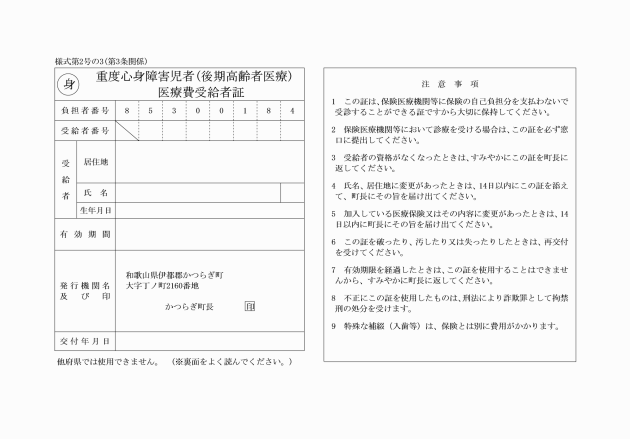 様式第2号の3(第3条関係)
身
重度心身障害児者(後期高齢者医療)
医療費受給者証
負担者番号 8 5 3 0 0 1 8 4
受給者番号
受給者
居住地
氏名
生年月日
有効期間
発行機関名
及び印
和歌山県伊都郡かつらぎ町
大字丁ノ町2160番地
かつらぎ町長 印
交付年月日
他府県では使用できません。 (※裏面をよく読んでください。)
注意事項
1 この証は、保険医療機関等に保険の自己負担分を支払わないで
受診することができる証ですから大切に保持してください。
2 保険医療機関等において診療を受ける場合は、この証を必ず窓
口に提出してください。
3 受給者の資格がなくなったときは、すみやかにこの証を町長に
返してください。
4 氏名、居住地に変更があったときは、14日以内にこの証を添え
て、町長にその旨を届け出てください。
5 加入している医療保険又はその内容に変更があったときは、14
日以内に町長にその旨を届け出てください。
6 この証を破ったり、汚したり又は失ったりしたときは、再交付
を受けてください。
7 有効期限を経過したときは、この証を使用することはできませ
んから、すみやかに町長に返してください。
8 不正にこの証を使用したものは、刑法により詐欺罪として拘禁
刑の処分を受けます。
9 特殊な補綴(入歯等)は、保険とは別に費用がかかります。